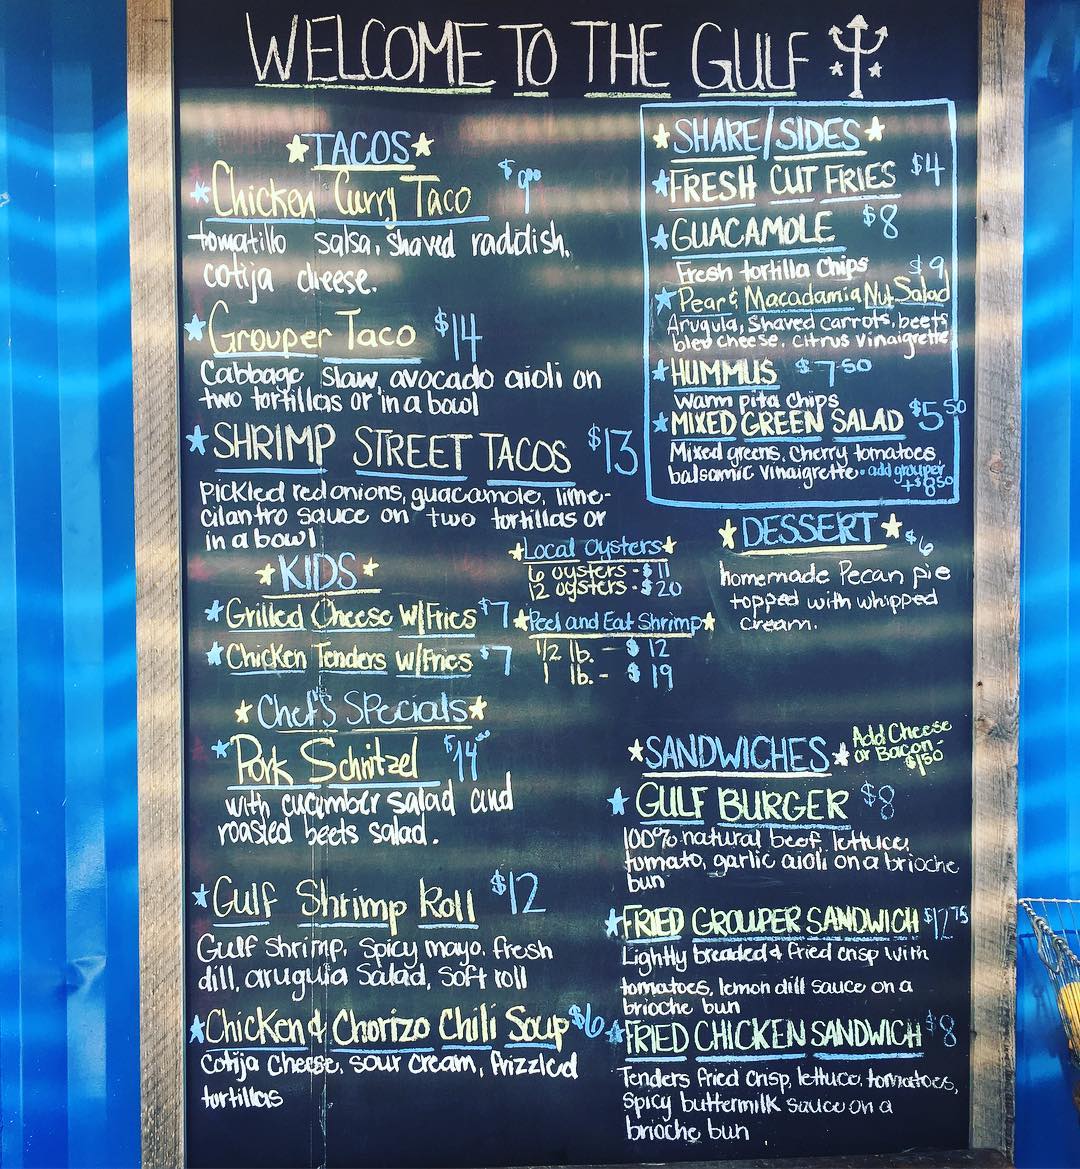 WELCOME TO THE GULF
TACOS
Chicken Curry Taco $9.00
tomatillo salsa, shaved raddish,
cotija cheese.
Grouper Taco $14
Cabbage slaw, avocado aioli on
two tortillas or in a bowl
SHRIMP STREET TACOS $13
Pickled red onions, guacamole, lime-
cilantro sauce on two tortillas or
in a bowl
KIDS
Grilled Cheese w/Fries $7
Chicken Tenders w/Fries $7
Local Oysters
6 oysters - $11
12 oysters - $20
Peel and Eat Shrimp
1/2 lb. - $12
1 lb. - $19
Chef's Specials
Pork Schnitzel $14.00
with cucumber salad and
roasted beets salad.
Gulf Shrimp Roll $12
Gulf shrimp, spicy mayo, fresh
dill, arugula salad, soft roll
Chicken & Chorizo Chili Soup $6
Cotija Cheese, sour cream, frizzled
tortillas
SHARE/SIDES
FRESH CUT FRIES $4
GUACAMOLE $8
Fresh tortilla chips
$9
Pear & Macadamia Nut Salad
Arugula, shaved carrots, beets
bleu cheese, citrus vinaigrette
HUMMUS $7.50
warm pita chips
MIXED GREEN SALAD $5.50
Mixed greens, cherry tomatoes,
balsamic vinaigrette • add grouper
+$8.50
DESSERT
$6
homemade Pecan pie
topped with whipped
cream.
SANDWICHES
Add Cheese
or Bacon -
$1.50
GULF BURGER $8
100% natural beef, lettuce,
tomato, garlic aioli on a brioche
bun
FRIED GROUPER SANDWICH $12.75
Lightly breaded & fried crisp with
tomatoes, lemon dill sauce on a
brioche bun
FRIED CHICKEN SANDWICH $8
Tenders fried crisp, lettuce, tomatoes,
spicy buttermilk sauce on a
brioche bun